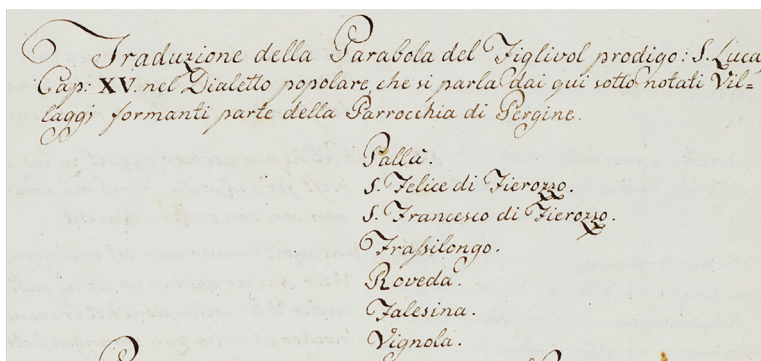 Traduzione della Parabola del Figlivol prodigo: S. Luca
Cap: XV. nel Dialetto popolare, che si parla dai qui sotto notati Vil=
laggj formanti parte della Parrocchia di Pergine.
Pallù.
S. Felice di Fierozzo.
S. Francesco di Fierozzo.
Frassilongo.
Roveda.
Falesina.
Vignola.